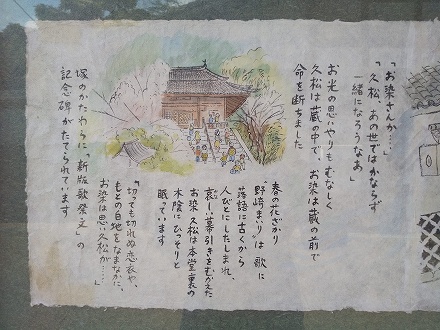 「お染さんか…」
「久松、あの世ではかならず
一緒になろうなあ」
お光の思いやりもむなしく
久松は蔵の中で、お染は蔵の前で
命を断ちました
春の花ざかり
“野崎まいり”は歌に
落語に古くから
人びとにしたしまれ、
哀しい幕引きをむかえた
お染、久松は本堂裏の
木陰にひっそりと
眠っています
「切っても切れぬ恋衣や、
もとの白地をなまなかに、
お染は思い久松が……」
塚のかたわらに「新版歌祭文」の
記念碑がたてられています